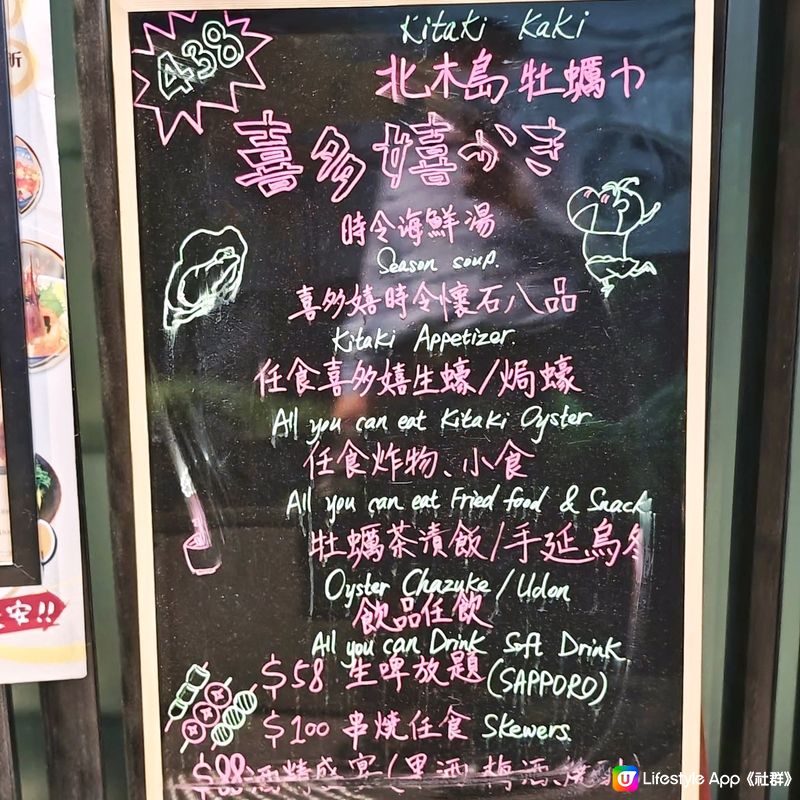 438
Kitaki Kaki
北木島牡蠣巾
喜多嬉かき
時令海鮮湯
Season soup.
喜多嬉時令懷石八品
Kitaki Appetizer.
任食喜多嬉生蠔/焗蠔
All you can eat Kitaki Oyster
任食炸物、小食
All you can eat Fried food & Snack
牡蠣茶漬飯/手延烏冬
Oyster Chazuke/Udon
飲品任飲
All you can Drink Soft Drink.
$58 生啤放題(SAPPORO)
$100 串燒任食 Skewers
$88酒精盛宴(果酒 梅酒 燒
安!!
Lifestyle App《社群》